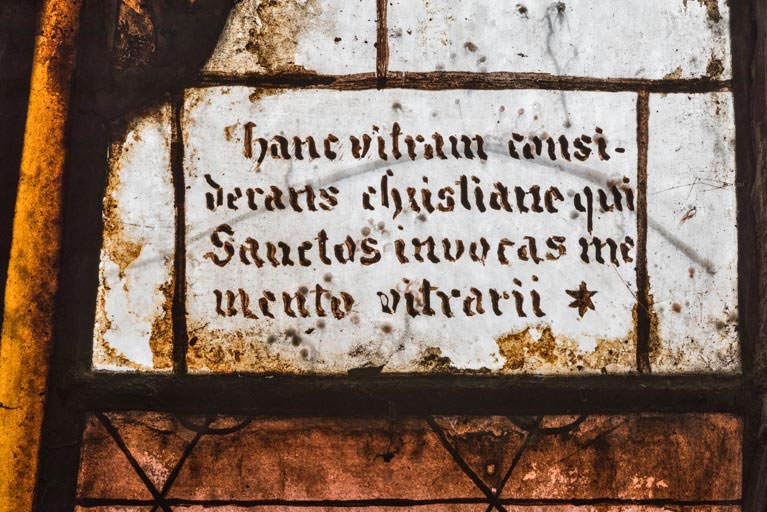 hanc vitram consi-
derans christiane qui
Sanctos invocas me
mento vitrarii ✶